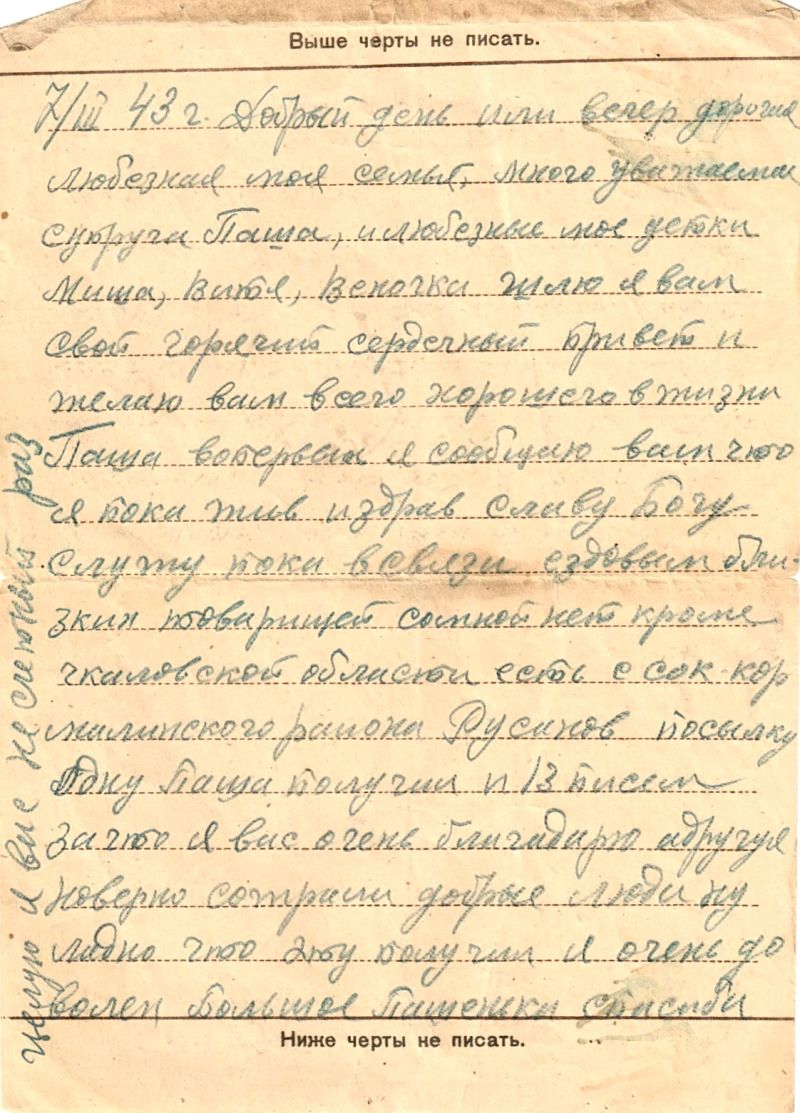 Выше черты не писать.
7/III 43 г. Добрый день или вечер дорогие
любезная моя семья, много уважаемая
супруга Паша, и любезные мое детки
Миша, Витя, Веночка шлю я вам
свой горячий сердечный привет и
желаю вам всего хорошего в жизни
Паша вопервых я сообщаю вам что
я пока жив и здрав славу Богу
служу пока в связи ездовым бли-
зких товарищей сомной нет кроме
чкаловской области есть с сок-кор
малинского района Русанов посылку
одну Паша получил и 13 писем
за что я вас очень благадарю адругуя
наверно сожрали добрые люди ну
ладно что эту получил я очень до
волен большое Пашенька спасиби
Ниже черты не писать.
целую я вас несчетный раз